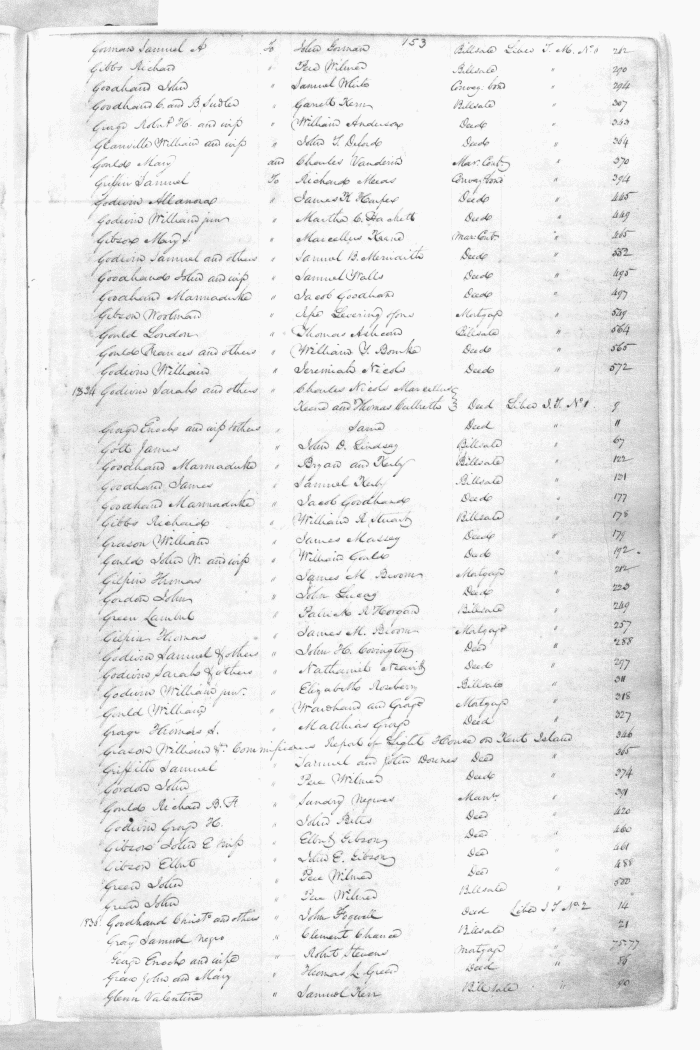 153
Gorman Samuel A To John Gorman Billsale Liber T. M. No 1 212
Gibbs Richard " Pere Wilmer Billsale " 290
Goodhand John " Samuel White Convey. bond " 294
Goodhand C. and B Sudler " Garrett Kerr Billsale " 307
George Robt H. and wife " William Anderson Deed " 343
Glanville William and wife " John T. Deed " 364
Gould Mary and Charles Vanderin Mar. Cont " 370
Griffin Samuel To Richard Meeds Convey bond " 394
Godwin Alleanora " James H Harper Deed " 445
Godwin William junr " Martha C. Hackett Deed " 449
Gibson Mary J. " Marcellus Keene Mar. Cont " 465
Godwin Samuel and others " Samuel B. Meridith Deed " 552
Goodhand John and wife " Samuel Walls Deed " 495
Goodhand Marmaduke " Jacob Goodhand Deed " 497
Gibson Woolman " Levering Mortgage " 549
Gould London " Thomas Ashcom Billsale " 564
Gould Frances and others " William Y Bourke Deed " 565
Godwin William " Jeremiah Nicols Deed " 572
1834 Godwin Sarah and others " Charles Nicols Marcellus
Keene and Thomas Culbreth Deed Liber J. T. No 1 9
George Enochs and wife others " Same Deed 11
Gott James " John O. Lindsay Billsale " 67
Goodhand Marmaduke " Bryan and Kerby Billsale " 122
Goodhand James " Samuel Kerby Billsale " 131
Goodhand Marmaduke " Jacob Goodhand Deed " 177
Gibbs Richard " William A Stuart Billsale " 178
Grason William " James Massey Deed " 179
Gould John W. and wife " William Gould Deed " 192
Gilpin Thomas " James M. Broom Mortgage " 212
Gordon John " John Lucas Deed " 223
Green Lambert " Patrick A Horgan Billsale " 249
Gilpin Thomas " James M. Broom Mortgage " 257
Godwin Samuel & others " John H. Covington Deed " 288
Godwin Sarah & others " Nathaniel Neavitt Deed " 297
Godwin William junr. " Elizabeth Roseberry Billsale " 311
Gould William " Worchand and George Mortgage " 318
George Thomas S. " Matthias George Deed " 327
Grason William &c Commissioners Report of Light House on Kent Island 346
Griffith Samuel " Samuel and John Downes Deed " 365
Gordon John " Pere Wilmer Deed " 374
Gould Richard B. F " Sundry Negroes Man. " 391
Godwin George H. " John Bates Deed " 420
Gibson John E & wife " Elbert Gibson Deed " 460
Gibson Elbert " John E. Gibson Deed " 461
Green John " Pere Wilmer Deed " 488
Green John " Pere Wilmer Billsale " 500
1835 Goodhand Christr and others " John Deed Liber J T No 2 14
Gray Samuel Negro " Clement Chance Billsale " 21
George Enochs and wife " Robert Stevens Mortgage " 75-77
Green John and Mary " Thomas L. Green Deed " 86
Glenn Valentine " Samuel Kerr Bill sale " 90